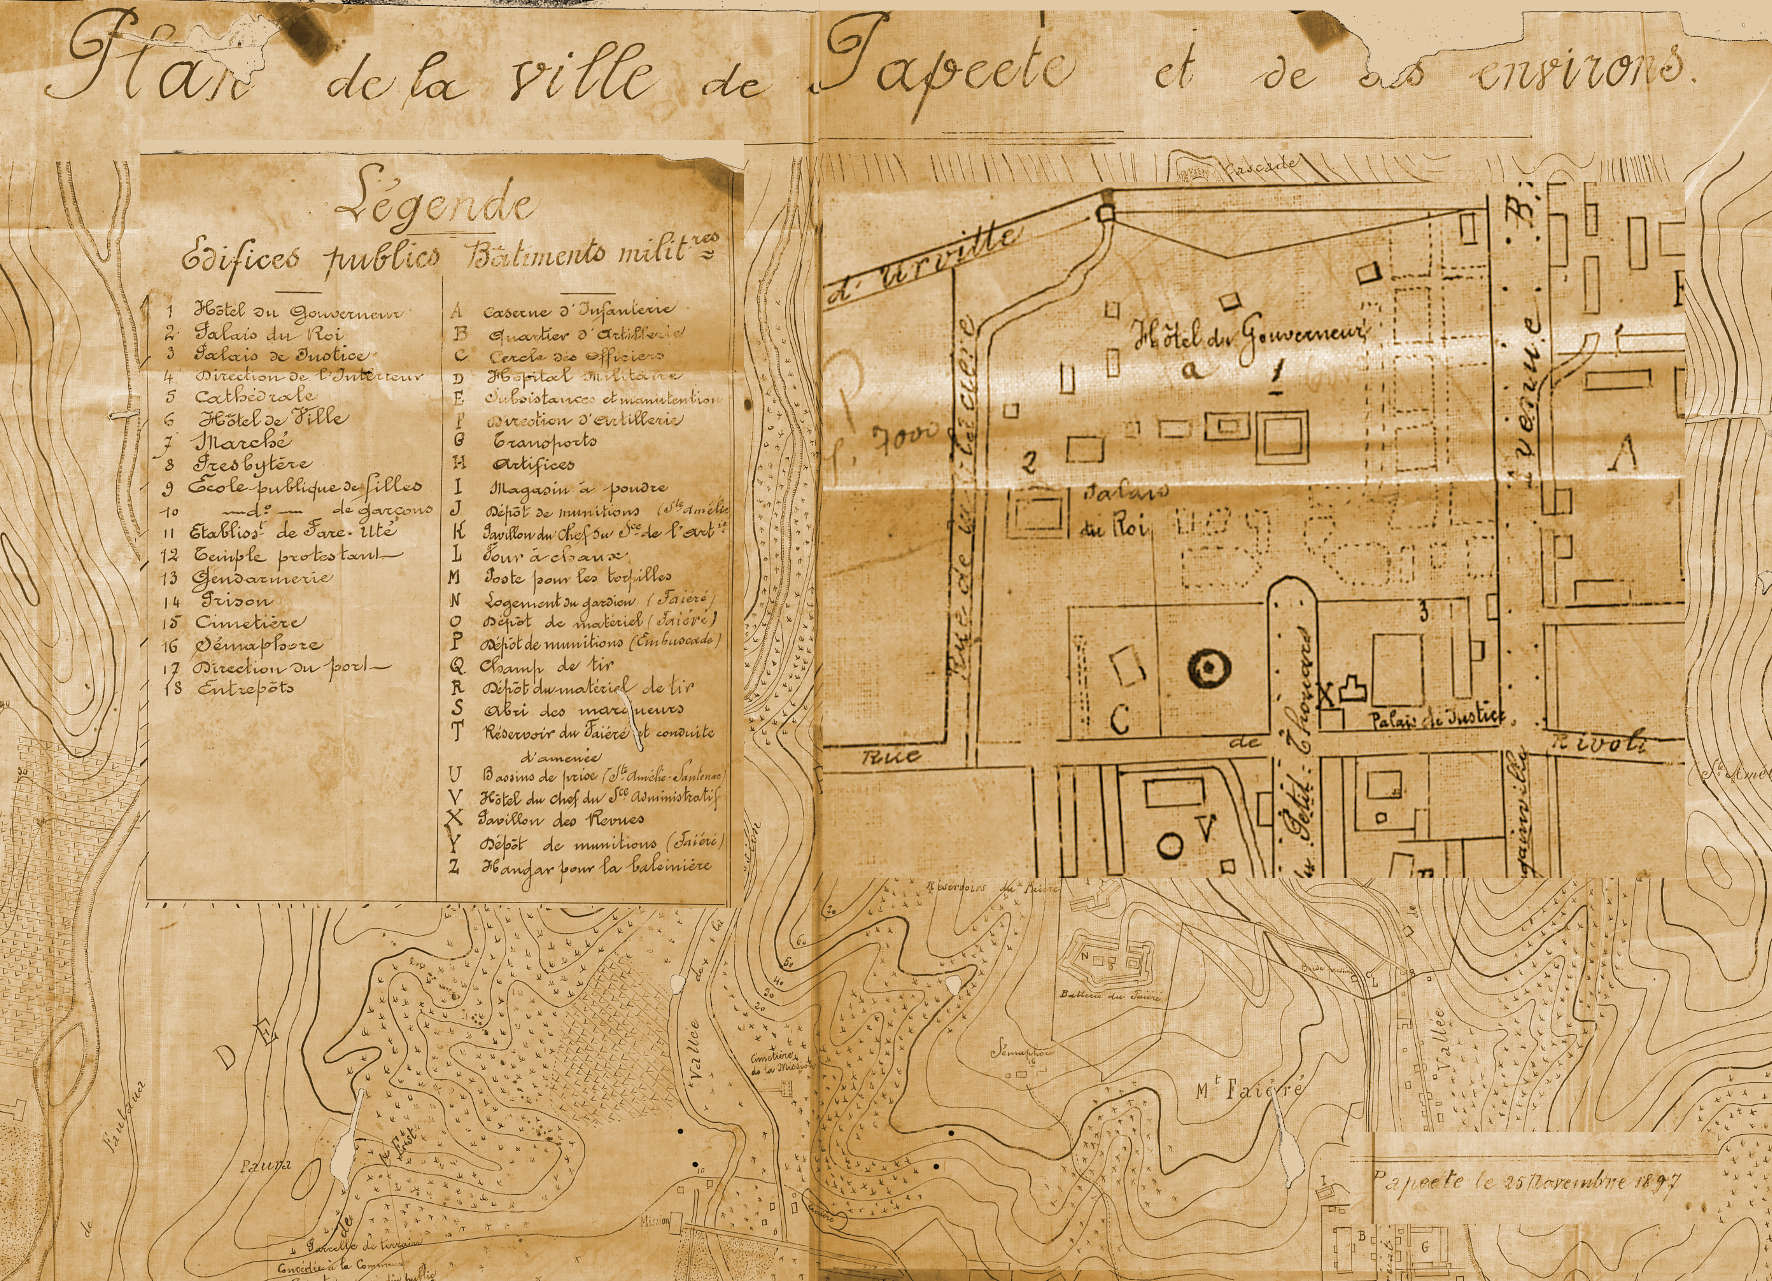 Plan de la ville de Papeete et de ses environs.
Légende
Edifices publics
1 Hôtel du Gouverneur
2 Palais du Roi
3 Palais de Justice
4 Direction de l'Intérieur
5 Cathédrale
6 Hôtel de Ville
7 Marché
8 Presbytère
9 Ecole publique de filles
10 —d°— de garçons
11 Etablisst de Fare-Uté
12 Temple protestant
13 Gendarmerie
14 Prison
15 Cimetière
16 Sémaphore
17 Direction du port
18 Entrepôts
Bâtiments militres
A Caserne d'Infanterie
B Quartier d'Artillerie
C Cercle des Officiers
D Hôpital Militaire
E Subsistances et manutention
F Direction d'Artillerie
G Transports
H Artifices
I Magasin à poudre
J Dépôt de munitions (Ste Amélie
K Pavillon du Chef du Sce de l'Artie
L Four à chaux
M Poste pour les torpilles
N Logement du gardien (Faiéré)
O Dépôt de matériel (Faiéré)
P Dépôt de munitions (Embuscade)
Q Champ de tir
R Dépôt du matériel de tir
S Abri des marqueurs
T Réservoir du Faiéré et conduite
d'amenée
U Bassins de prise (Ste Amélie-Santenac)
V Hôtel du chef du Sce Administratif
X Pavillon des Revues
Y Dépôt de munitions (Faiéré)
Z Hangar pour la baleinière
Cascade
d'Urville
Avenue B.
Hôtel du Gouverneur
a 1
P. 7000
2
Palais
du Roi
A
3
C
X
Palais de Justice
Rue de Rivoli
du Petit-Thouars
V
gainville
Ste Amél
Réservoirs du Faiéré
N
Batterie du Faiéré
Sémaphore
16
Mt Faiéré
Vallée
Vallée
de
60
50
40
30
20
Cimetière
de la Mission
DE
Pauna
de
de
10
Mission
Parcelle de terrain
Concédée à la Commune
Papeete le 25 Novembre 1897
I
B
G